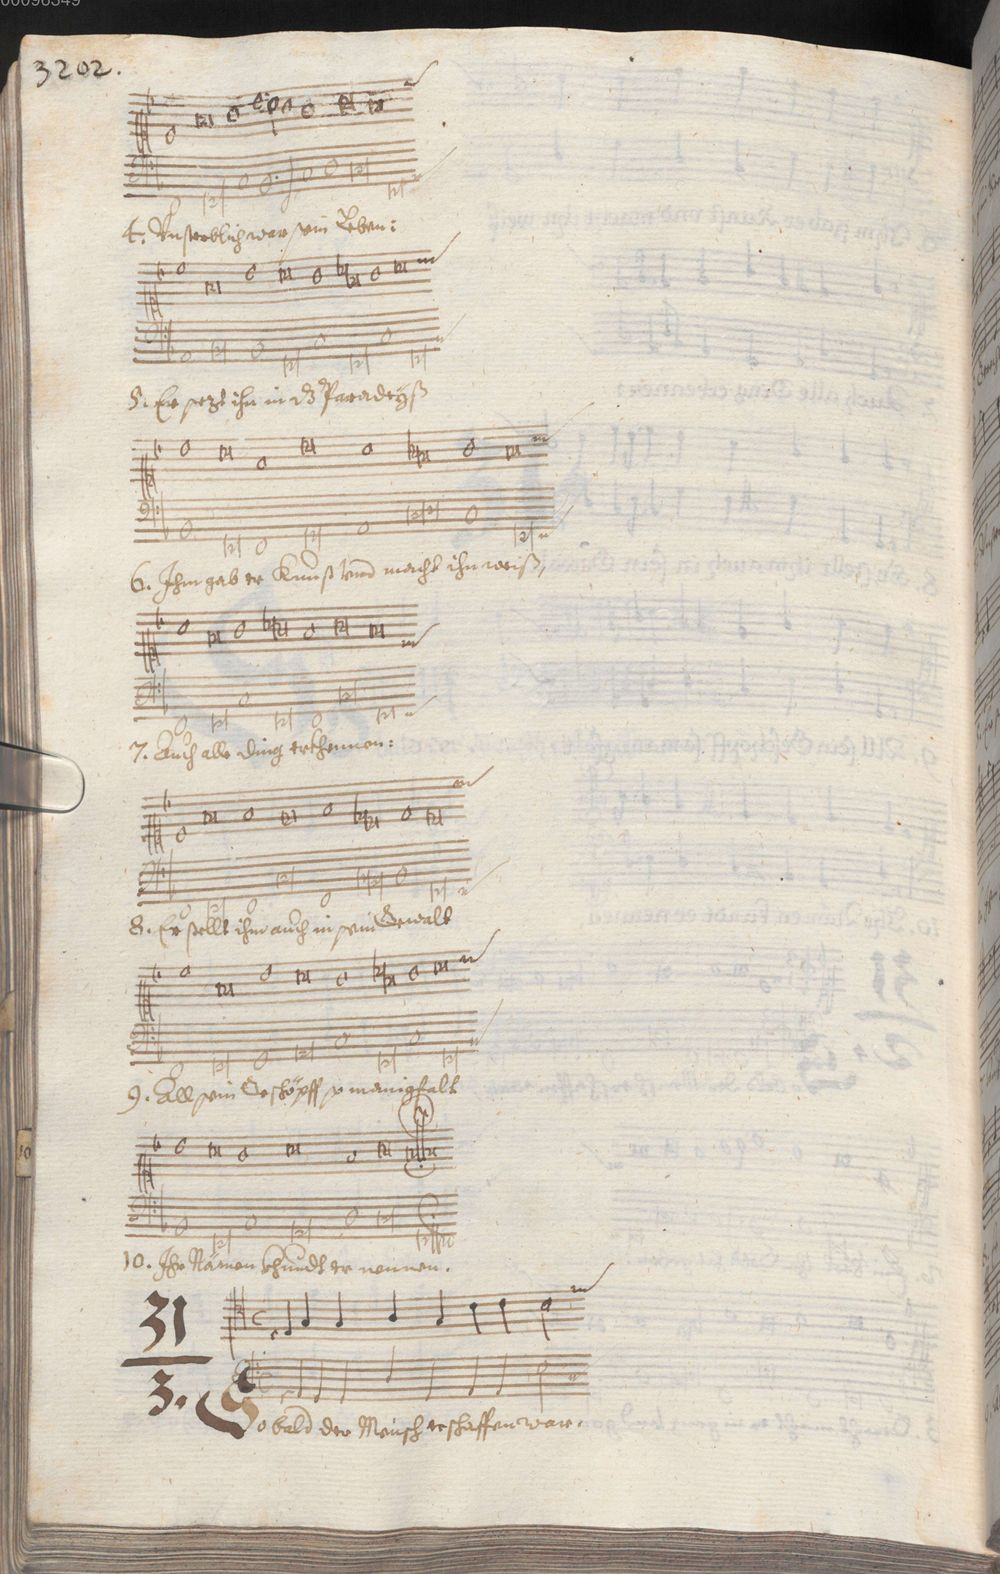 00096349
3202.
4. Unsterblich war sein Leben:
5. Er sezt ihn in dz Paradeyß
6. Ihm gab er Kunst und macht ihn weiß,
7. Auch alle ding erkhennen:
8. Er stellt ihm auch in sein Gewalt
9. All sein Geschöpff so manigfalt
10. Ihr Namen khundt er nennen.
31
3. Sobald der Mensch erschaffen war.